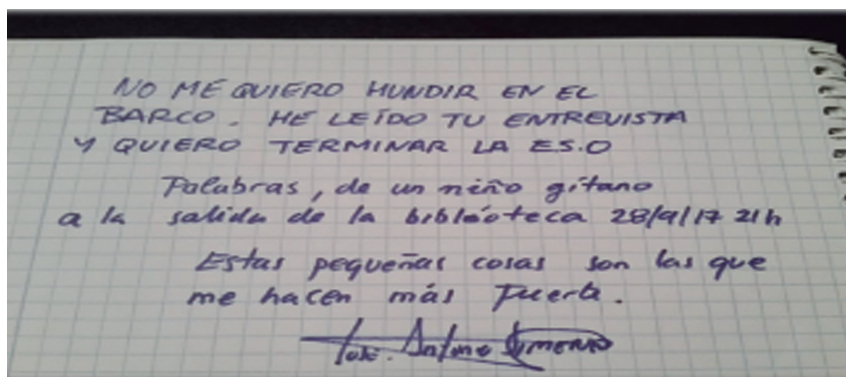 NO ME QUIERO HUNDIR EN EL
BARCO. HE LEÍDO TU ENTREVISTA
Y QUIERO TERMINAR LA ES.O
Palabras, de un niño gitano
a la salida de la biblioteca 28/9/17 21h
Estas pequeñas cosas son las que
me hacen más fuerte.
José. Antonio Jimeno